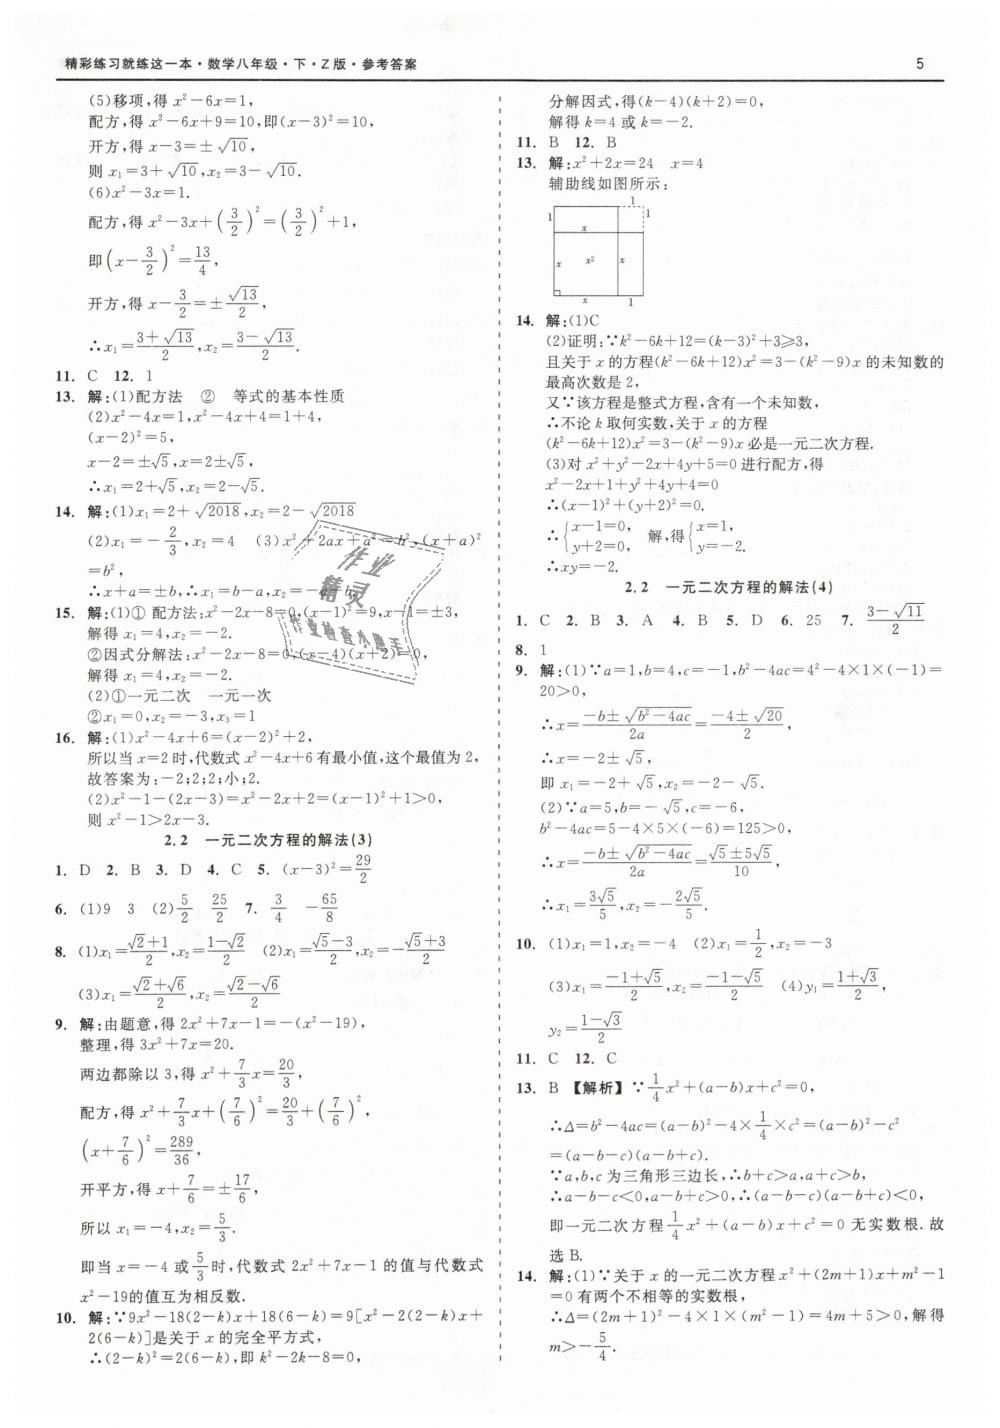 精彩练习就练这一本·数学八年级·下·Z版·参考答案 5
(5)移项,得 x²-6x=1,
配方,得 x²-6x+9=10,即(x-3)²=10,
开方,得 x-3=±√10,
则 x₁=3+√10,x₂=3-√10.
(6)x²-3x=1.
配方,得 x²-3x+(3/2)²=(3/2)²+1,
即(x-3/2)²=13/4,
开方,得 x-3/2=±√13/2,
∴x₁=(3+√13)/2,x₂=(3-√13)/2.
11. C 12. 1
13. 解:(1)配方法 ② 等式的基本性质
(2)x²-4x=1,x²-4x+4=1+4,
(x-2)²=5,
x-2=±√5,x=2±√5,
∴x₁=2+√5,x₂=2-√5.
14. 解:(1)x₁=2+√2018,x₂=2-√2018
(2)x₁=-2/3,x₂=4 (3)x²+2ax+a²=b²,(x+a)²
=b²,
∴x+a=±b,∴x₁=b-a,x₂=-a-b.
15. 解:(1)① 配方法:x²-2x-8=0,(x-1)²=9,x-1=±3,
解得 x₁=4,x₂=-2.
②因式分解法:x²-2x-8=0,(x-4)(x+2)=0,
解得 x₁=4,x₂=-2.
(2)①一元二次 一元一次
②x₁=0,x₂=-3,x₃=1
16. 解:(1)x²-4x+6=(x-2)²+2,
所以当 x=2时,代数式 x²-4x+6有最小值,这个最值为2,
故答案为:-2;2;2;小;2.
(2)x²-1-(2x-3)=x²-2x+2=(x-1)²+1>0,
则 x²-1>2x-3.
2.2 一元二次方程的解法(3)
1. D 2. B 3. D 4. C 5. (x-3)²=29/2
6. (1)9 3 (2)5/2 25/2 7. 3/4 -65/8
8. (1)x₁=(√2+1)/2,x₂=(1-√2)/2 (2)x₁=(√5-3)/2,x₂=-(√5+3)/2
(3)x₁=(√2+√6)/2,x₂=(√2-√6)/2
9. 解:由题意,得 2x²+7x-1=-(x²-19),
整理,得 3x²+7x=20.
两边都除以 3,得 x²+7/3x=20/3,
配方,得 x²+7/3x+(7/6)²=20/3+(7/6)²,
(x+7/6)²=289/36,
开平方,得 x+7/6=±17/6,
所以 x₁=-4,x₂=5/3.
即当 x=-4 或5/3时,代数式 2x²+7x-1 的值与代数式
x²-19的值互为相反数.
10. 解:∵9x²-18(2-k)x+18(6-k)=9[x²-2(2-k)x+
2(6-k)]是关于 x 的完全平方式,
∴(2-k)²=2(6-k),即 k²-2k-8=0,
分解因式,得(k-4)(k+2)=0,
解得 k=4 或 k=-2.
11. B 12. B
13. 解:x²+2x=24 x=4
辅助线如图所示:
1
1 1
x
x x² x
x 1
14. 解:(1)C
(2)证明:∵k²-6k+12=(k-3)²+3≥3,
且关于 x 的方程(k²-6k+12)x²=3-(k²-9)x 的未知数的
最高次数是 2,
又∵该方程是整式方程,含有一个未知数,
∴不论 k 取何实数,关于 x 的方程
(k²-6k+12)x²=3-(k²-9)x 必是一元二次方程.
(3)对 x²+y²-2x+4y+5=0 进行配方,得
x²-2x+1+y²+4y+4=0
∴(x-1)²+(y+2)²=0.
∴{x-1=0, y+2=0, 解,得{x=1, y=-2.
∴xy=-2.
2.2 一元二次方程的解法(4)
1. C 2. B 3. A 4. B 5. D 6. 25 7. (3-√11)/2
8. 1
9. 解:(1)∵a=1,b=4,c=-1,b²-4ac=4²-4×1×(-1)=
20>0,
∴x=(-b±√b²-4ac)/2a=(-4±√20)/2,
∴x=-2±√5,
即 x₁=-2+√5,x₂=-2-√5.
(2)∵a=5,b=-√5,c=-6,
b²-4ac=5-4×5×(-6)=125>0,
∴x=(-b±√b²-4ac)/2a=(√5±5√5)/10,
∴x₁=3√5/5,x₂=-2√5/5.
10. (1)x₁=1,x₂=-4 (2)x₁=1/2,x₂=-3
(3)x₁=(-1+√5)/2,x₂=(-1-√5)/2 (4)y₁=(1+√3)/2,
y₂=(1-√3)/2
11. C 12. C
13. B 【解析】∵1/4x²+(a-b)x+c²=0,
∴Δ=b²-4ac=(a-b)²-4×1/4×c²=(a-b)²-c²
=(a-b-c)(a-b+c).
∵a,b,c 为三角形三边长,∴b+c>a,a+c>b,
∴a-b-c<0,a-b+c>0,∴(a-b-c)(a-b+c)<0,
即一元二次方程1/4x²+(a-b)x+c²=0 无实数根.故
选 B.
14. 解:(1)∵关于 x 的一元二次方程 x²+(2m+1)x+m²-1
=0 有两个不相等的实数根,
∴Δ=(2m+1)²-4×1×(m²-1)=4m+5>0,解得
m>-5/4.
作业
精灵
作业检查小帮手